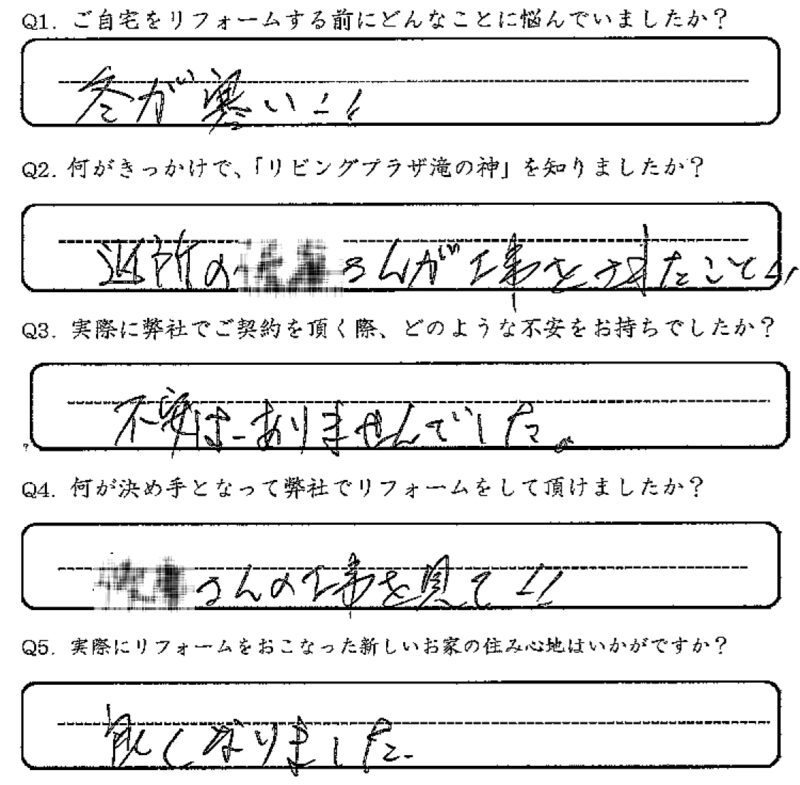 Q1. ご自宅をリフォームする前にどんなことに悩んでいましたか？
冬が寒い！！
Q2. 何がきっかけで、「リビングプラザ滝の神」を知りましたか？
近所の さんが工事をされたこと！！
Q3. 実際に弊社でご契約を頂く際、どのような不安をお持ちでしたか？
不安はありませんでした。
Q4. 何が決め手となって弊社でリフォームをして頂けましたか？
さんの工事を見て！！
Q5. 実際にリフォームをおこなった新しいお家の住み心地はいかがですか？
良くなりました。